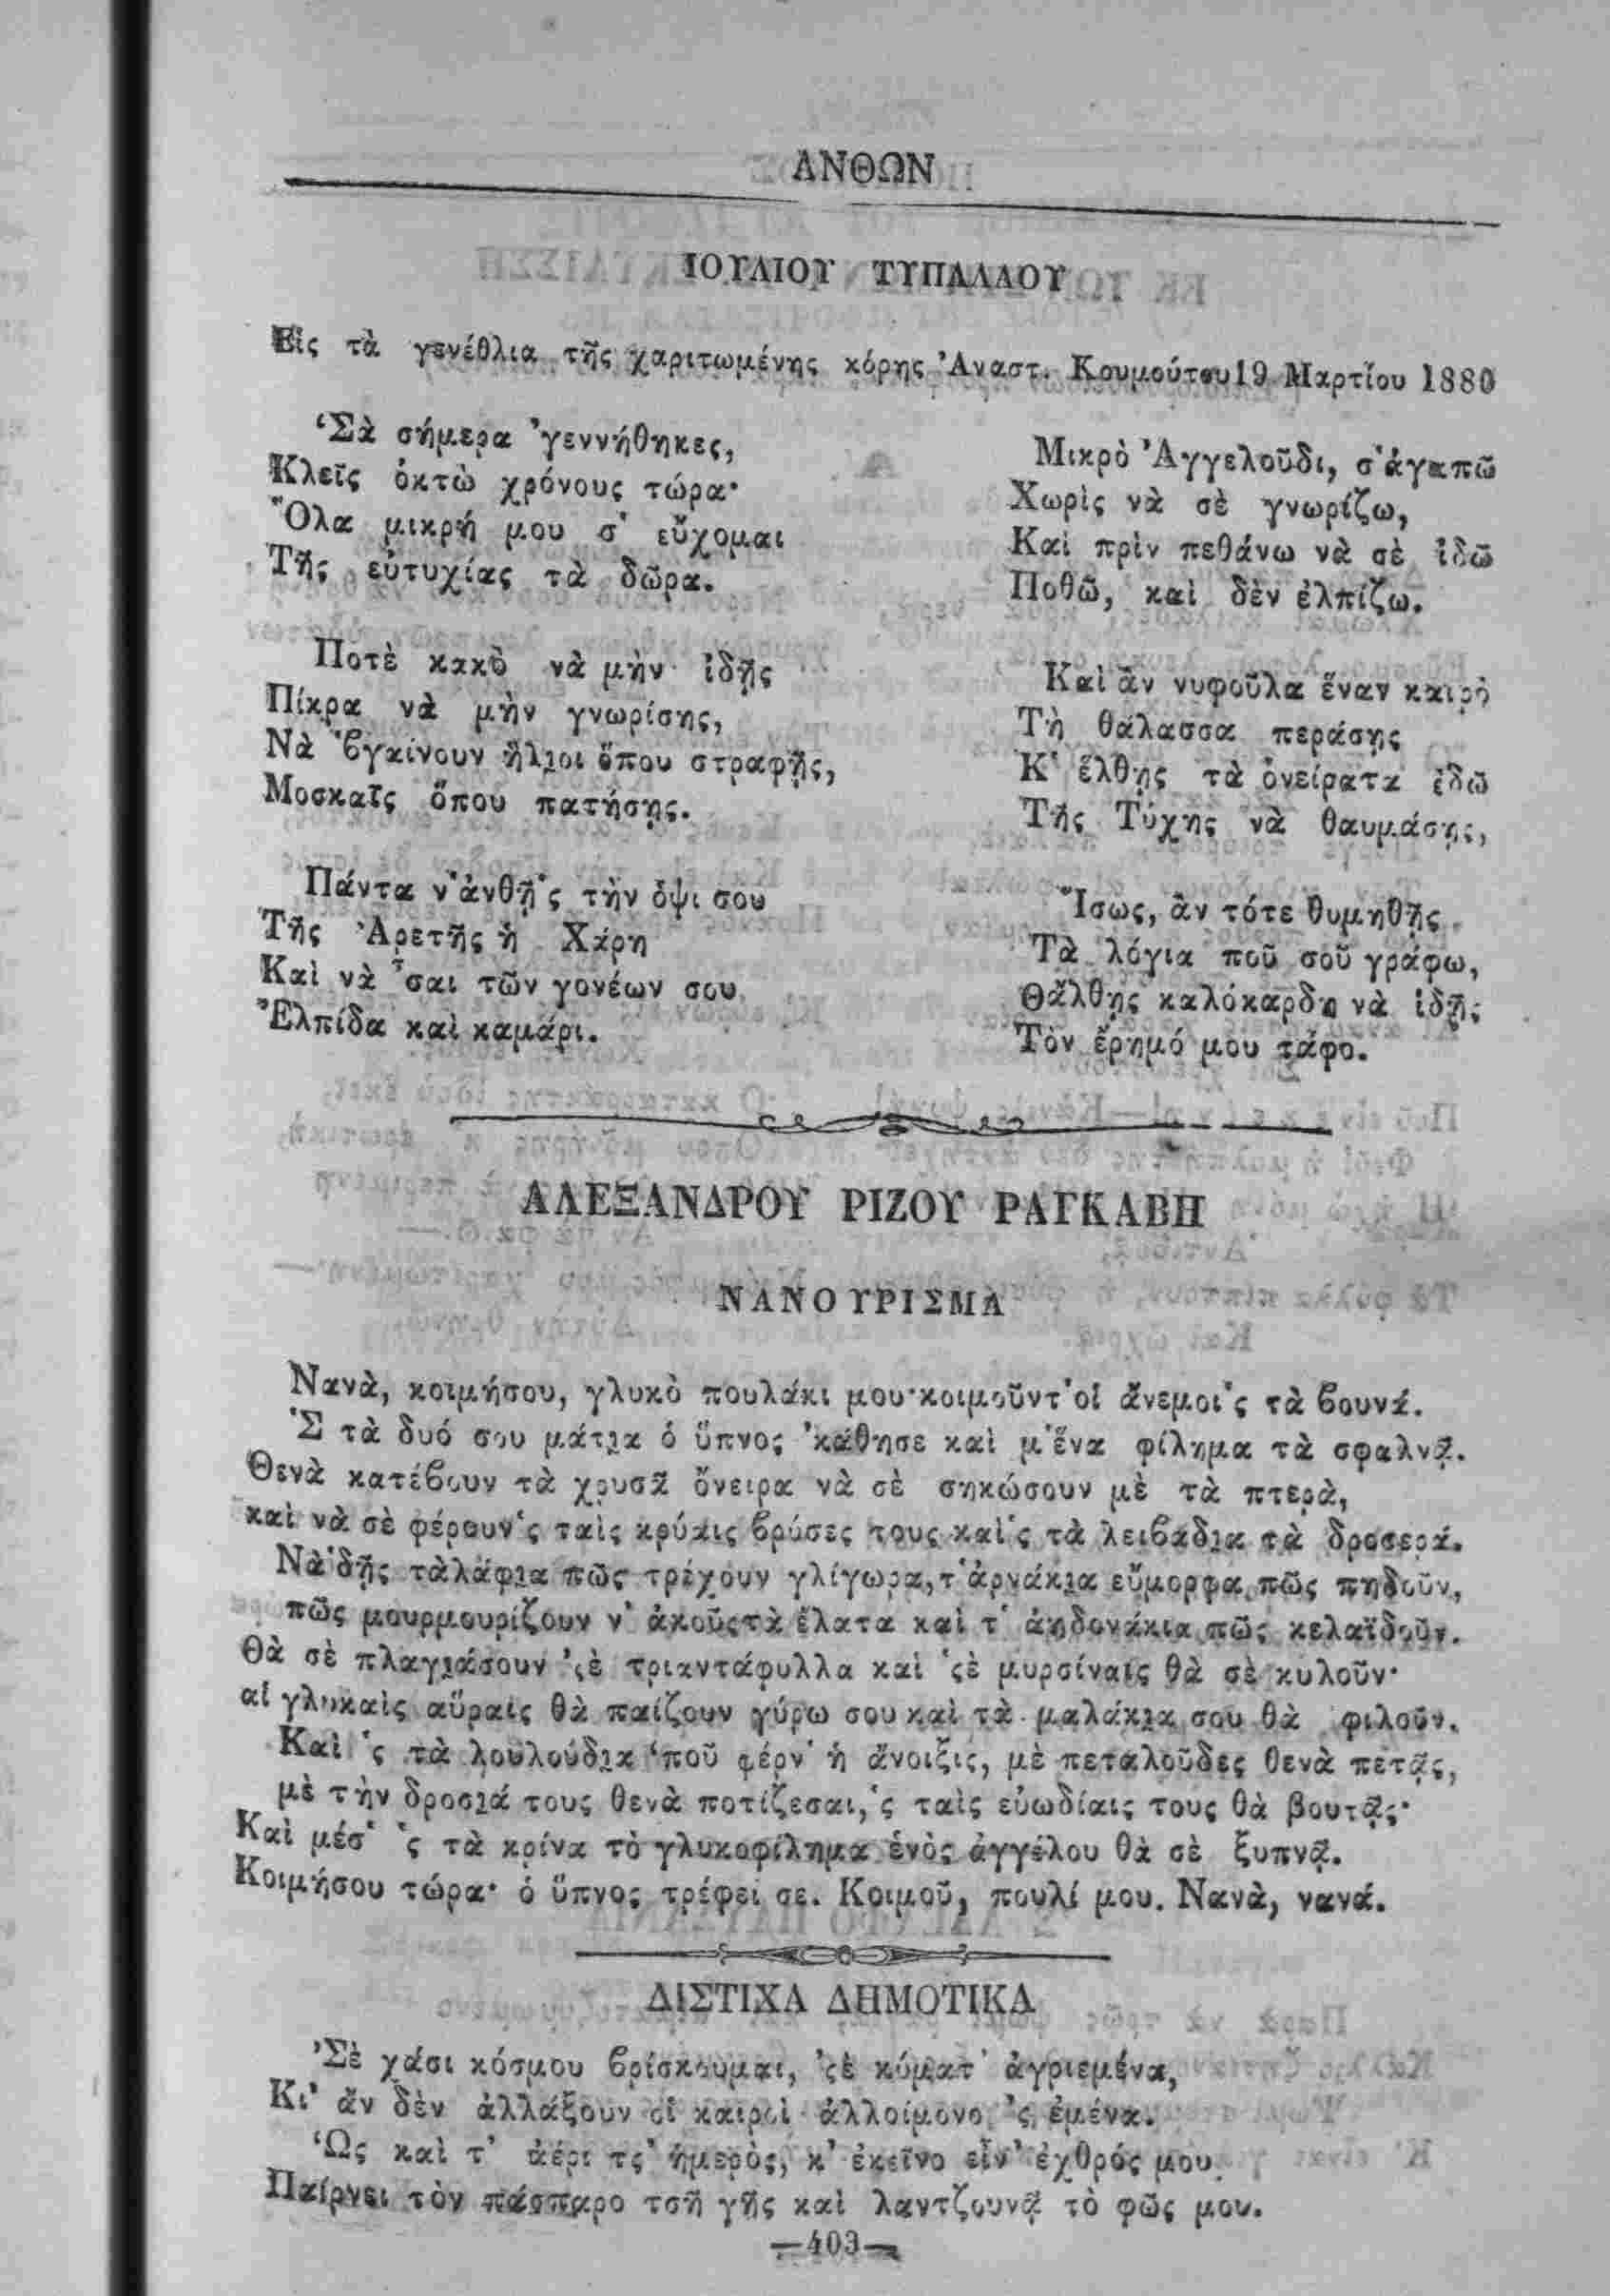 ΑΝΘΩΝ
ΙΟΥΛΙΟΥ ΤΥΠΑΛΔΟΥ
Εἰς τὰ γενέθλια τῆς χαριτωμένης κόρης Ἀναστ. Κουμούτου 19 Μαρτίου 1880
Σὰ σήμερα ’γεννήθηκες,
Κλεῖς ὀκτὼ χρόνους τώρα·
Ὅλα μικρή μου σ’ εὔχομαι
Τῆς εὐτυχίας τὰ δῶρα.
Ποτὲ κακὸ νὰ μὴν ἰδῇς
Πίκρα νὰ μὴν γνωρίσῃς,
Νὰ ’βγαίνουν ἥλιοι ὅπου στραφῇς,
Μοσκαῖς ὅπου πατήσῃς.
Πάντα ν’ἀνθῇ ’ς τὴν ὄψι σου
Τῆς Ἀρετῆς ἡ Χάρη
Καὶ νὰ ’σαι τῶν γονέων σου
Ἐλπίδα καὶ καμάρι.
Μικρὸ Ἀγγελοῦδι, σ’ἀγαπῶ
Χωρὶς νὰ σὲ γνωρίζω,
Καὶ πρὶν πεθάνω νὰ σὲ ἰδῶ
Ποθῶ, καὶ δὲν ἐλπίζω.
Καὶ ἂν νυφοῦλα ἕναν καιρὸ
Τὴ θάλασσα περάσῃς
Κ’ ἔλθῃς τὰ ὀνείρατα ἐδῶ
Τῆς Τύχης νὰ θαυμάσῃς,
Ἴσως, ἂν τότε θυμηθῇς
Τὰ λόγια ποῦ σοῦ γράφω,
Θἄλθῃς καλόκαρδη νὰ ἰδῇς
Τὸν ἔρημό μου τάφο.
ΑΛΕΞΑΝΔΡΟΥ ΡΙΖΟΥ ΡΑΓΚΑΒΗ
ΝΑΝΟΥΡΙΣΜΑ
Νανὰ, κοιμήσου, γλυκὸ πουλάκι μου· κοιμοῦντ’ οἱ ἄνεμοι ’ς τὰ βουνά.
Σ τὰ δυό σου μάτια ὁ ὕπνος ’κάθησε καὶ μ’ ἕνα φίλημα τὰ σφαλνᾷ.
Θενὰ κατέβουν τὰ χρυσᾶ ὄνειρα νὰ σὲ σηκώσουν μὲ τὰ πτερὰ,
καὶ νὰ σὲ φέρουν ’ς ταῖς κρύαις βρύσες τους καὶ ’ς τὰ λειβάδια τὰ δροσερά.
Νὰ ’δῇς τὰλάφια πῶς τρέχουν γλίγωρα, τ’ἀρνάκια εὔμορφα πῶς πηδοῦν,
πῶς μουρμουρίζουν ν’ ἀκοῦς τὰ ἔλατα καὶ τ’ ἀηδονάκια πῶς κελαϊδοῦν.
Θὰ σὲ πλαγιάσουν ’ςὲ τριαντάφυλλα καὶ ’ςὲ μυρσίναις θὰ σὲ κυλοῦν·
αἱ γλυκαὶς αὔραις θὰ παίζουν γύρω σου καὶ τὰ μαλάκια σου θὰ φιλοῦν.
Καὶ ’ς τὰ λουλούδια ‘ποῦ φέρν’ ἡ ἄνοιξις, μὲ πεταλοῦδες θενὰ πετᾷς,
μὲ τὴν δροσιά τους θενὰ ποτίζεσαι, ’ς ταὶς εὐωδίαις τους θὰ βουτᾷς·
Καὶ μέσ’ ’ς τὰ κρίνα τὸ γλυκοφίλημα ἑνὸς ἀγγέλου θὰ σὲ ξυπνᾷ.
Κοιμήσου τώρα· ὁ ὕπνος τρέφει σε. Κοιμοῦ, πουλί μου. Νανὰ, νανά.
ΔΙΣΤΙΧΑ ΔΗΜΟΤΙΚΑ
Σὲ χάσι κόσμου βρίσκουμαι, ’ςὲ κύματ’ ἀγριεμένα,
Κι’ ἂν δὲν ἀλλάξουν οἱ καιροὶ ἀλλοίμονο ’ς ἐμένα.
Ὡς καὶ τ’ ἀέρι τς’ ἡμερὸς, κ’ ἐκεῖνο εἶν’ ἐχθρός μου
Παίρνει τὸν πάσπαρο τσῆ γῆς καὶ λαντζουνᾷ τὸ φῶς μου.
—403—